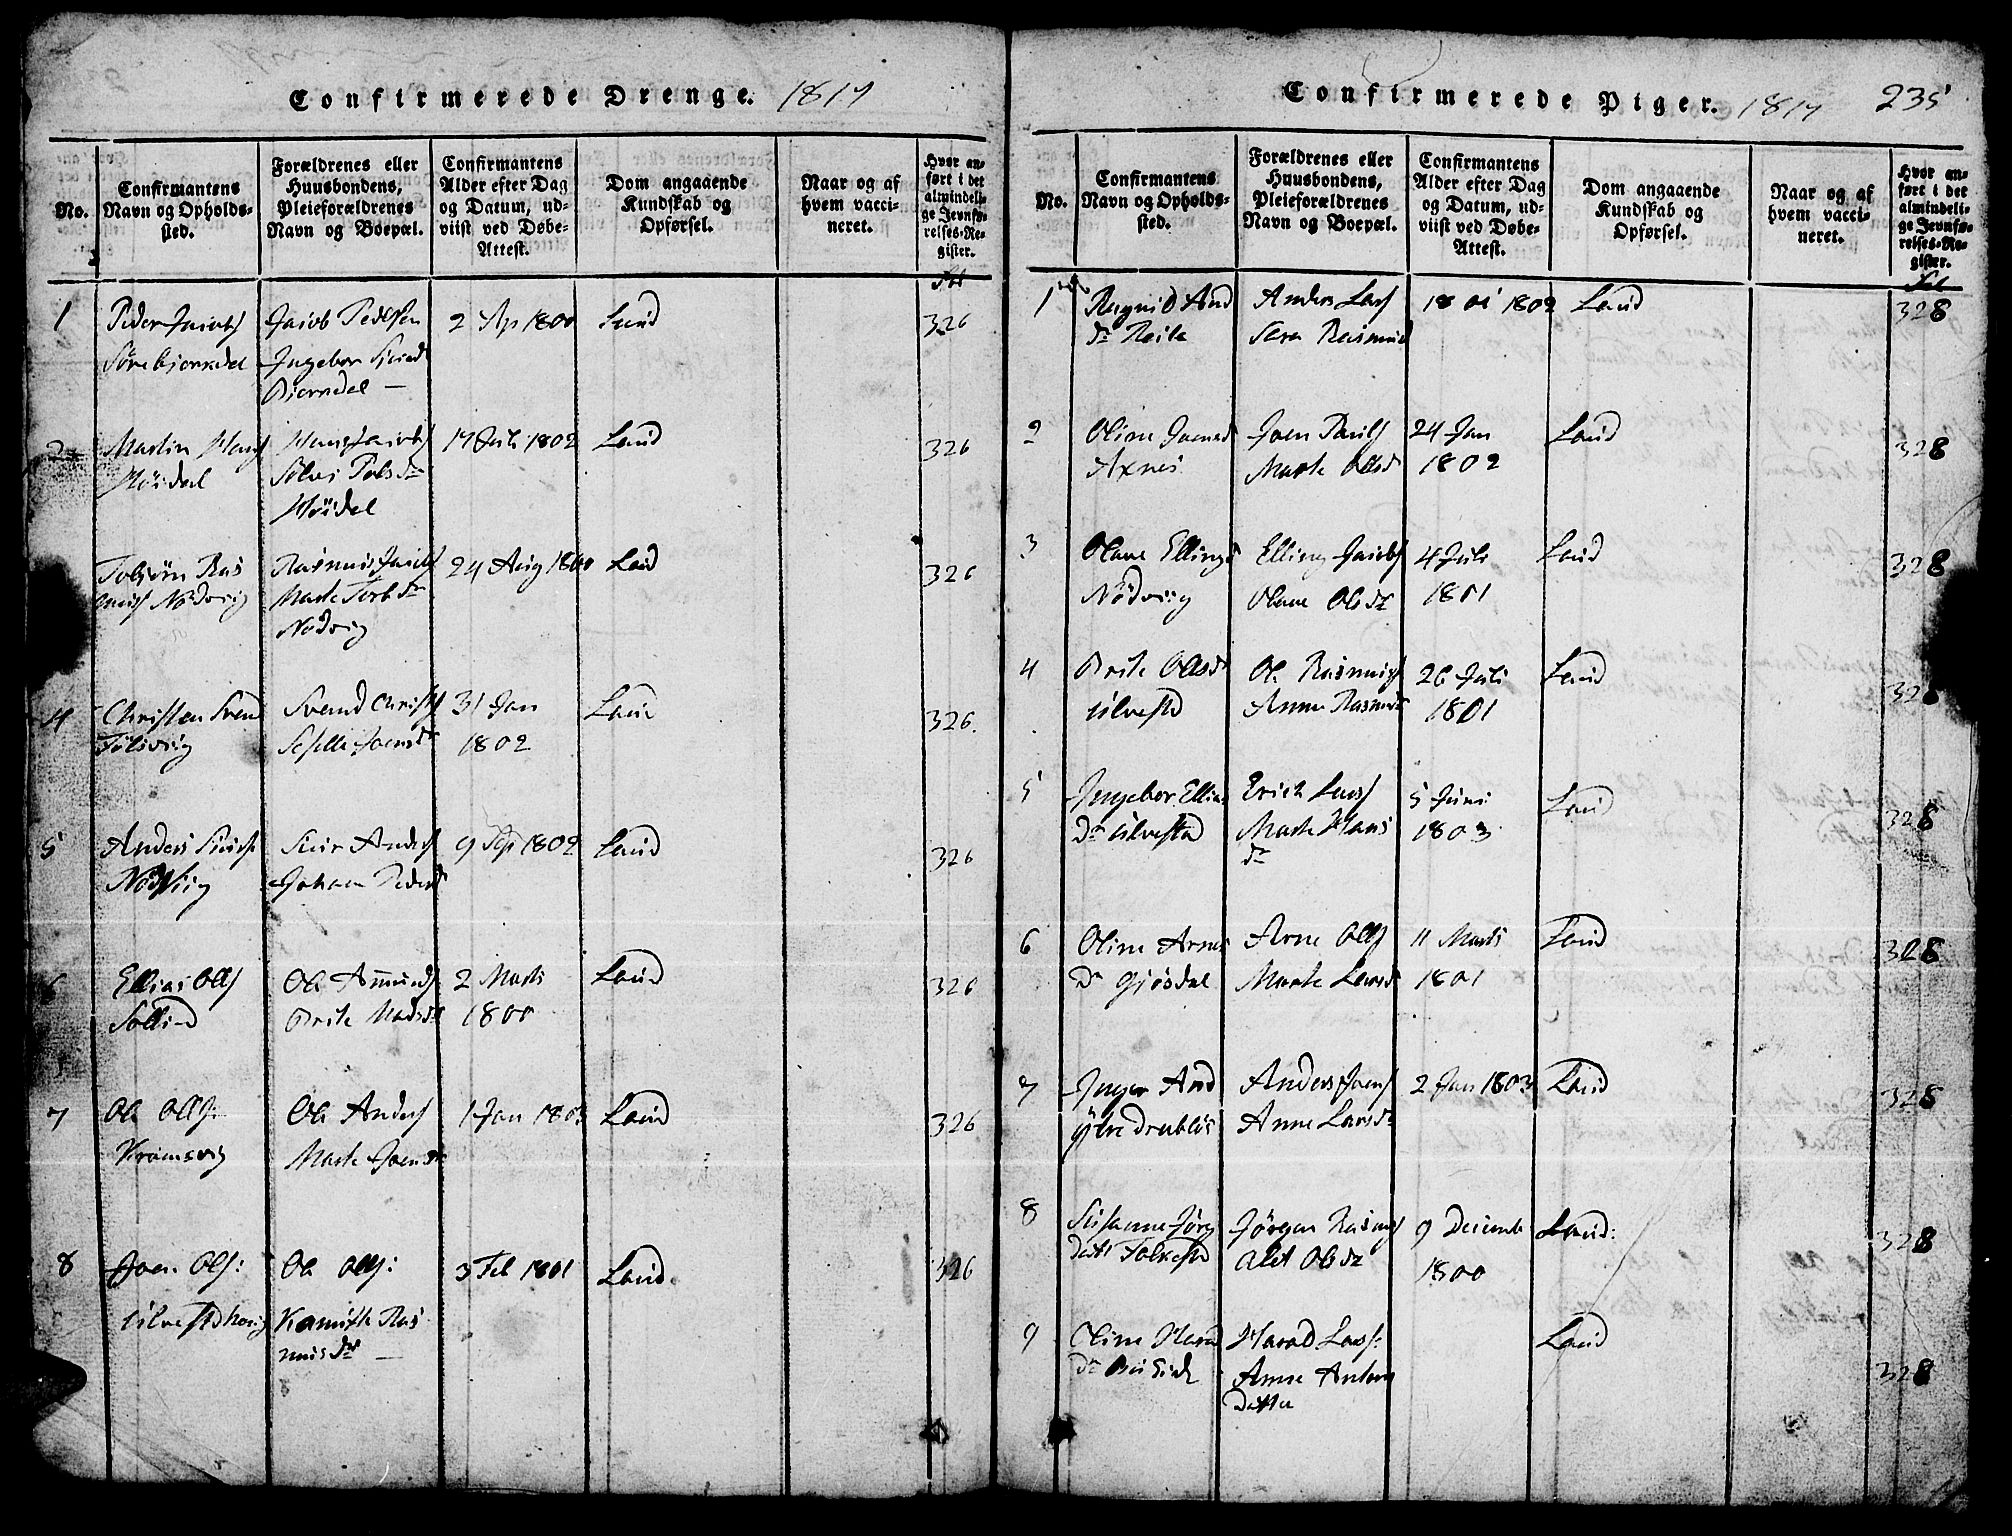 Confirmerede Drenge. 1817
No.
Confirmantens
Navn og Opholds-
sted.
Forældrenes eller
Huusbondens,
Pleieforældrenes
Navn og Boepæl.
Confirmantens
Alder efter Dag
og Datum, ud-
viist ved Døbe-
Attest.
Dom angaaende
Kundskab og
Opførsel.
Naar og af
hvem vacci-
neret.
Hvor an-
ført i det
almindeli-
ge Jevnfø-
relses-Re-
gister.
Fol
1
Peder Jacobs
Jacob Pedersen
Ingebor
Biørnedel
2 Ap 1800
Laud
326
2
Martin Hans
Høidal
Hans Jacobs
Høidel
17 Juli 1802
Laud
326
3
Tobiørn Ras
mus Nodvig
Rasmus Jacobs
Marte Torb dr
Nodvig
24 Aug 1800
Laud
326
4
Christen Svend
Svend Christs
Siselle Joensdr
31 Jan
1802
Laud
326.
5
Anders Siurs
Nodvig
Siur Anders
Johan Peders
9 Sep 1802
Laud
326
6
Ellias Olls
Ole Amunds
Brite Madsdr
2 Marts
1800
Laud
326
7
Ole Olls:
Kramsvig
Ole Anders
Marte Joensdr
1 Jan 1803
Laud
326
8
Joen Olls:
Ulvestd
Ole Olls:
Ras
musdr
3 Feb 1801
Laud
326
Confirmerede Piger. 1817 235
No.
Confirmantens
Navn og Opholds-
sted.
Forældrenes eller
Huusbondens,
Pleieforældrenes
Navn og Boepæl.
Confirmantens
Alder efter Dag
og Datum, ud-
viist ved Døbe-
Attest.
Dom angaaende
Kundskab og
Opførsel.
Naar og af
hvem vacci-
neret.
Hvor an-
ført i det
almindeli-
ge Jevnfø-
relses-Re-
gister.
Fol
1
Ragnid And
dr Reite
Anders Lars
Sera Rasmusd
18 1802
Laud
328
2
Oline Joensd
Axnes
Joen Pauls
Marte Ollsd
24 Jan
1802
Laud
328
3
Olave Ellings
Nödvig
Elling Jacobs
Olave Olsdr
4 Juli
1801
Laud
328
4
Brite Ollsd
Ulvestd
Ole Rasmus
Anne Rasmusd
26 Juli
1801
Laud
328
5
Ingebor Ellias
Dr Ulvestd
Erich Lars
Marte Hans
dr
5 Juni
1803
Laud
328
6
Oline Arnes
Dr Gjøsdal
Arne Olls
Marte Larsd
11 Marts
1801
Laud
328
7
Inger And
Anders Joens
Anne Larsdr
2 Jan 1803
Laud
328
8
Susanne Jørg
Datt Folkestd
Jørgen Rasmus
Alet Olsdr
9 Decemb
1800
Laud:
328
9
Oline Harad
Harad Lars:
Anne Anders
Datter
Laud
328